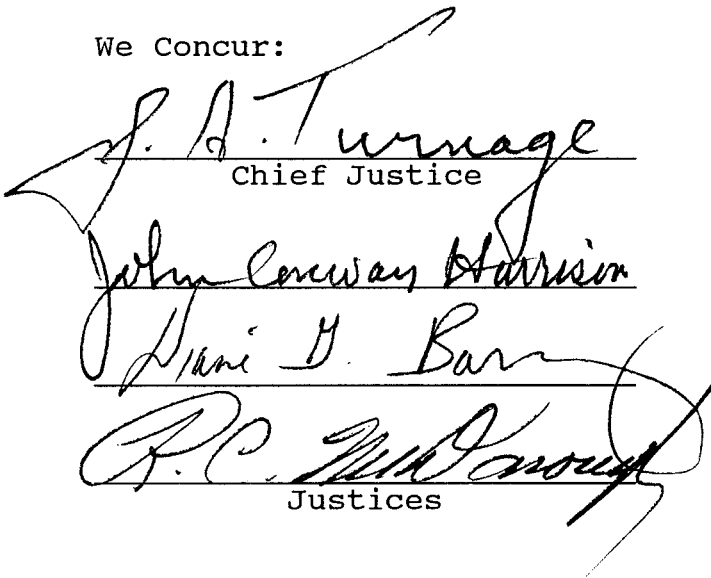 We Concur:
J. A. Turnage
Chief Justice
John Conway Harrison
Diane G. Barz
R. C. McDonough
Justices